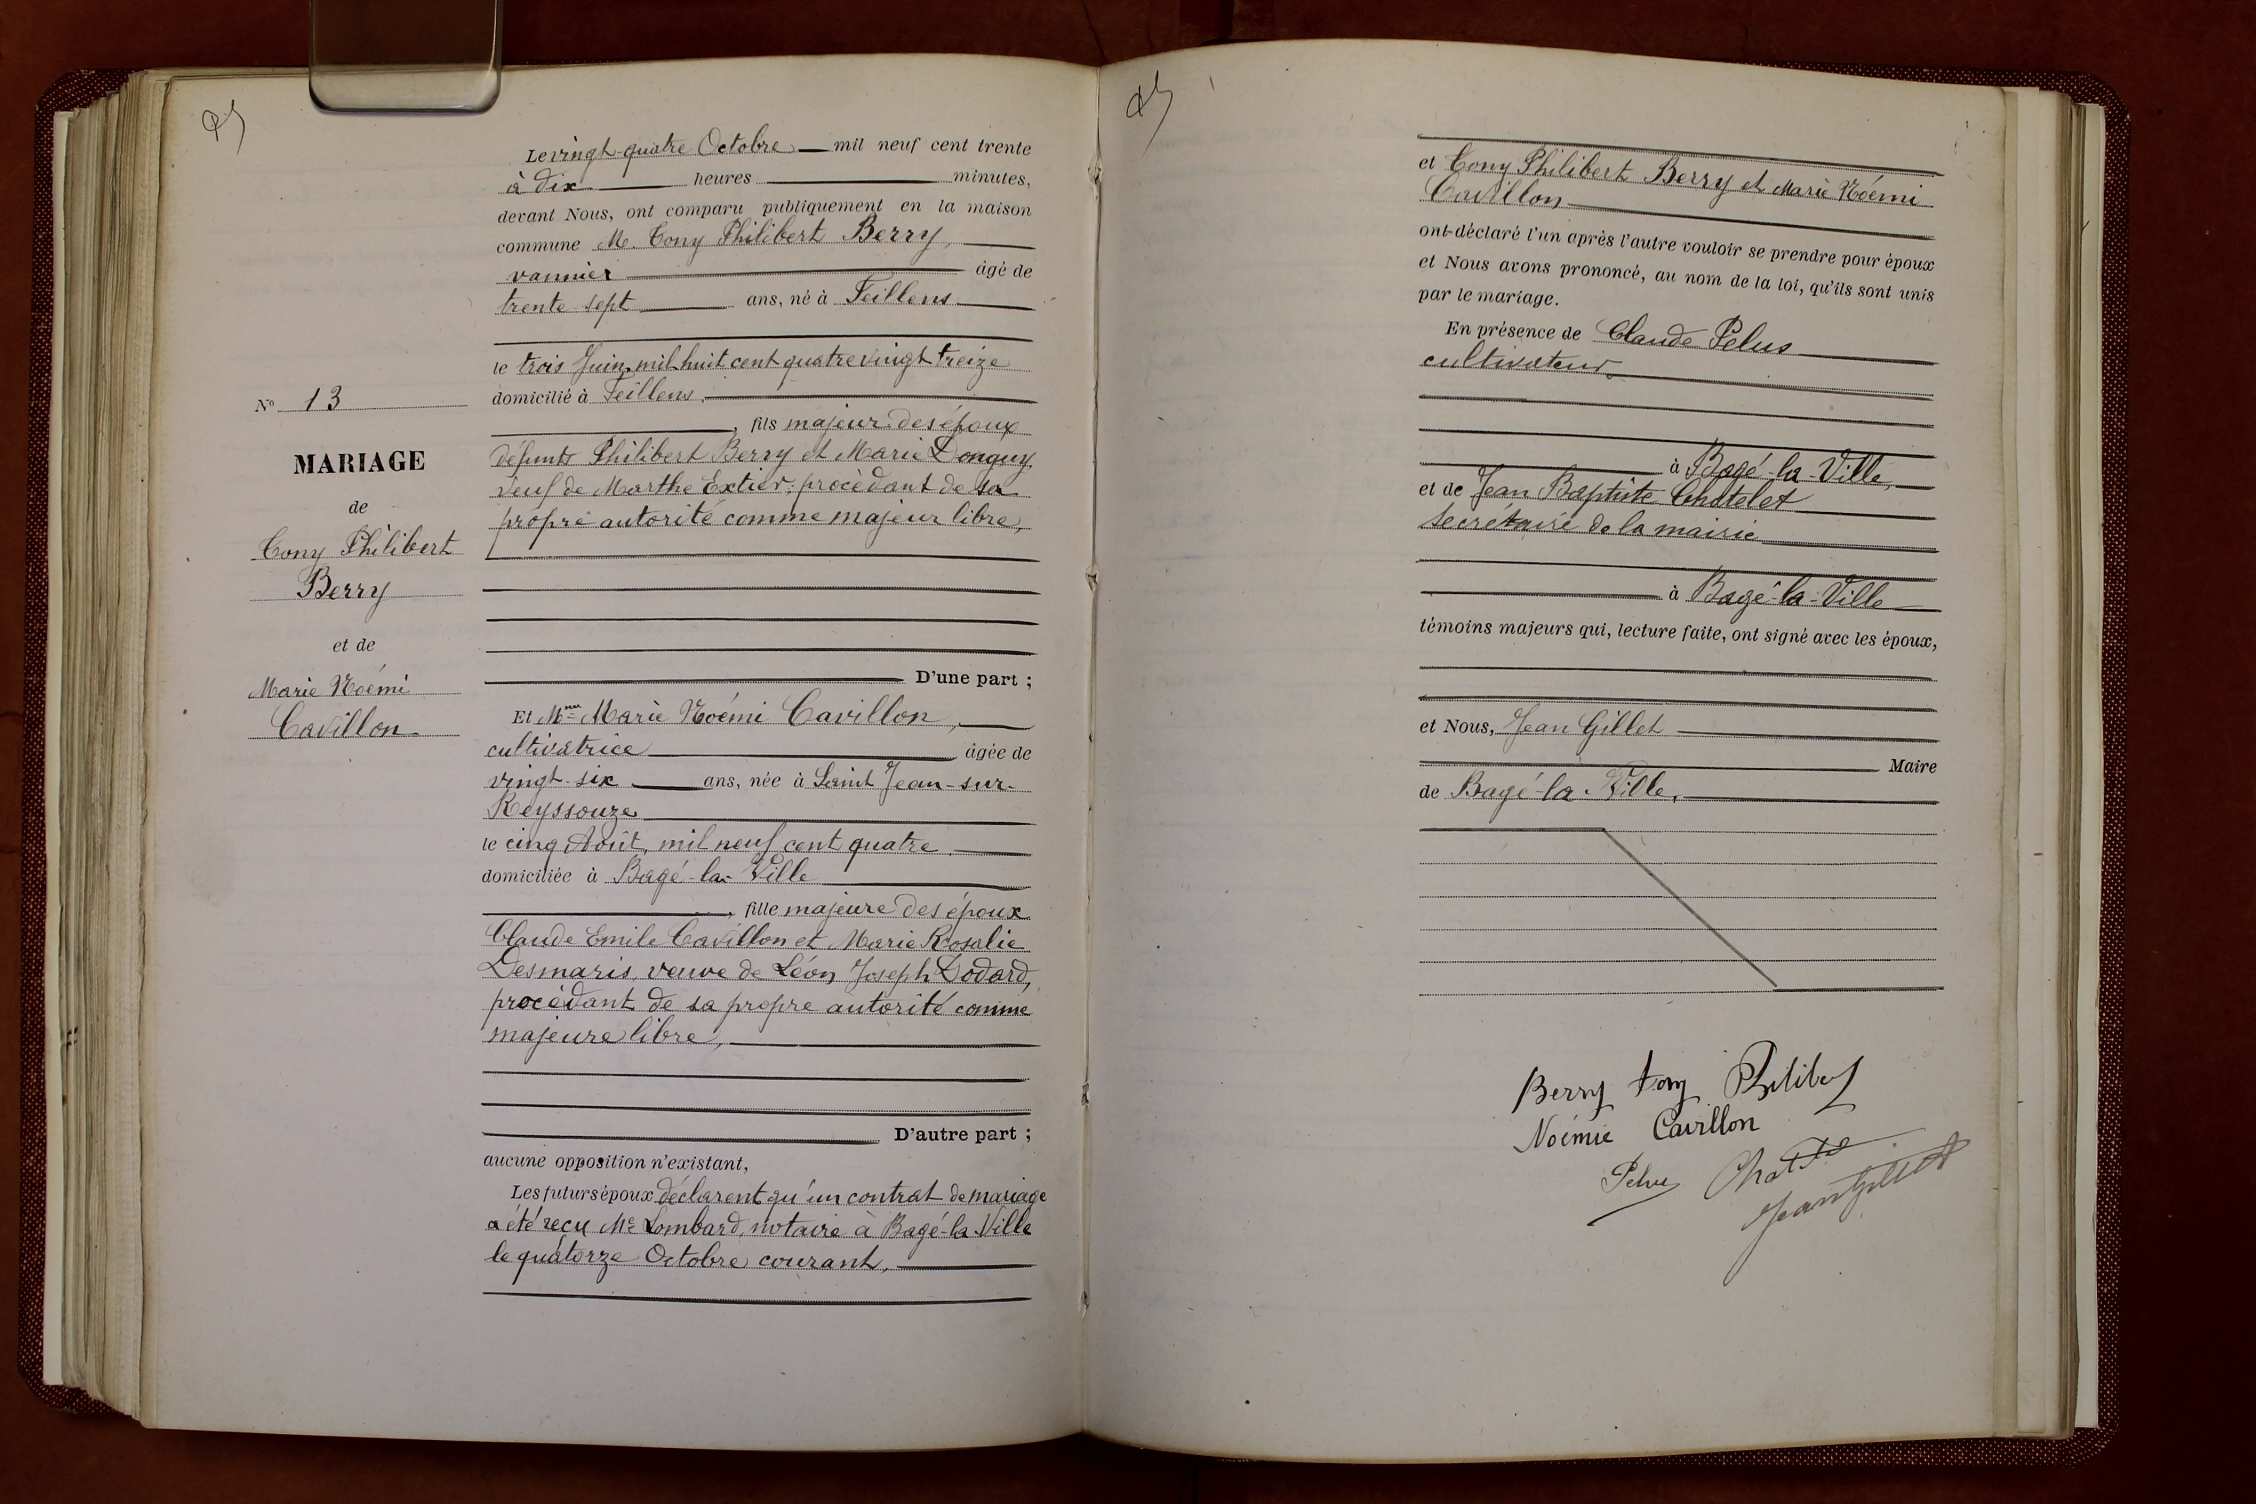 Le vingt-quatre Octobre mil neuf cent trente
à dix heures minutes,
devant Nous, ont comparu publiquement en la maison
commune M. Tony Philibert Berry,
vannier âgé de
trente-sept ans, né à Feillens
le trois Juin mil huit cent quatre vingt treize
domicilié à Feillens.
, fils majeur des époux
défunts Philibert Berry et Marie Donguy,
veuf de Marthe Extier; procédant de sa
propre autorité comme majeur libre,
D'une part ;
Et Mme Marie Noémi Cavillon,
cultivatrice âgée de
vingt-six ans, née à Saint Jean-sur-
Reyssouze
le cinq Août, mil neuf cent quatre
domiciliée à Bagé-la-Ville
, fille majeure des époux
Claude Emile Cavillon et Marie Rosalie
Desmaris, veuve de Léon Joseph Dodard,
procédant de sa propre autorité comme
majeure libre,
D'autre part ;
aucune opposition n'existant,
Les futurs époux déclarent qu'un contrat de mariage
a été reçu Me Lombard, notaire à Bagé-la-Ville
le quatorze Octobre courant.
No 13
MARIAGE
de
Tony Philibert
Berry
et de
Marie Noémi
Cavillon
et Tony Philibert Berry et Marie Noémi
Cavillon
ont déclaré l'un après l'autre vouloir se prendre pour époux
et Nous avons prononcé, au nom de la loi, qu'ils sont unis
par le mariage.
En présence de Claude Pelus
cultivateur
à Bagé-la-Ville,
et de Jean Baptiste Chatelet
secrétaire de la mairie
à Bagé-la-Ville
témoins majeurs qui, lecture faite, ont signé avec les époux,
et Nous, Jean Gillet
Maire
de Bagé-la-Ville.
Berry tony Philibert
Noémie Cavillon
Pelus
Jean Gillet